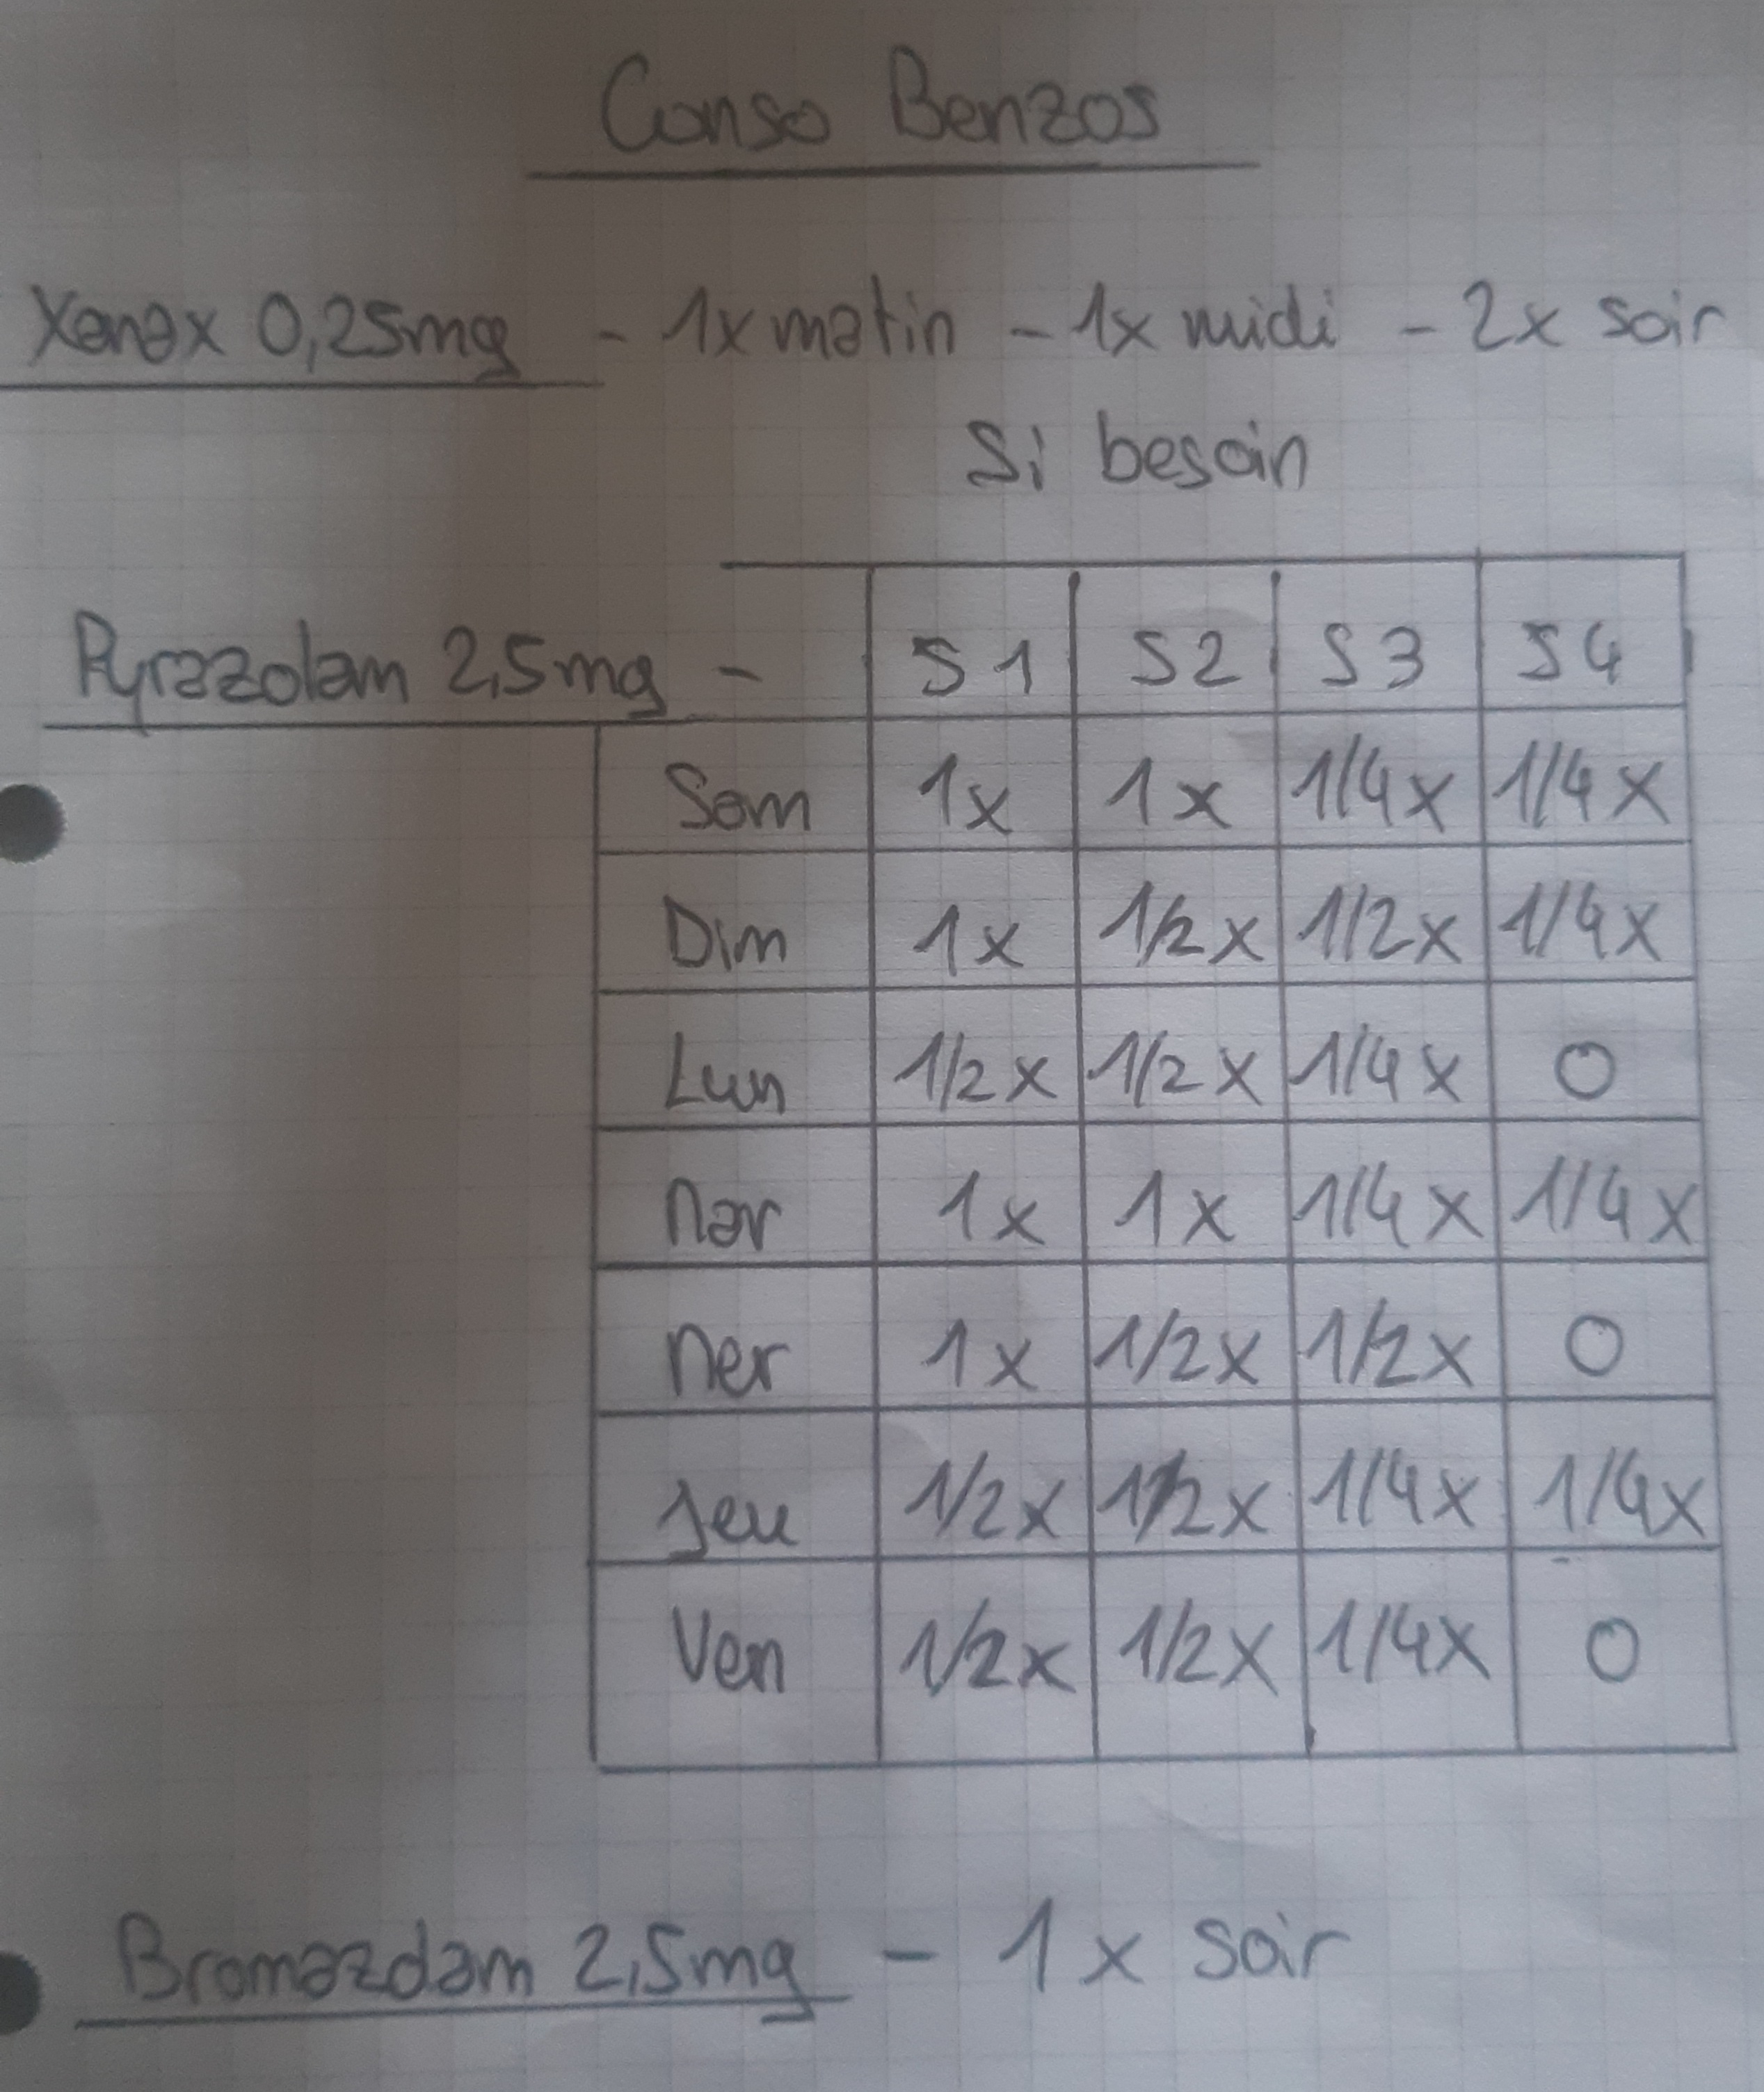 Conso Benzos
Xanax 0,25mg - 1x matin - 1x midi - 2x soir
Si besoin
Pyrazolam 2,5mg - S1 S2 S3 S4
Sam 1x 1x 1/4x 1/4x
Dim 1x 1/2x 1/2x 1/4x
Lun 1/2x 1/2x 1/4x 0
Mar 1x 1x 1/4x 1/4x
Mer 1x 1/2x 1/2x 0
Jeu 1/2x 1/2x 1/4x 1/4x
Ven 1/2x 1/2x 1/4x 0
Bromazolam 2,5mg - 1x soir